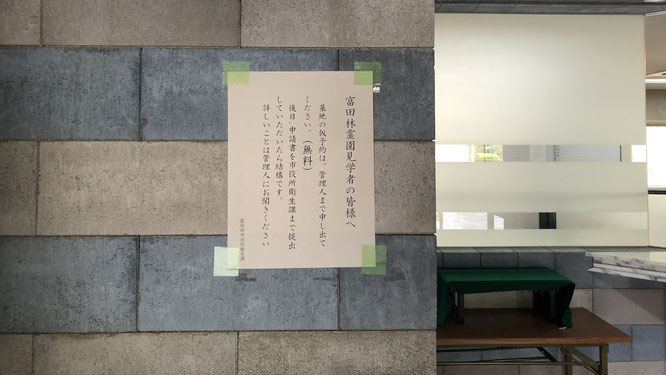 富田林霊園見学者の皆様へ
墓地の仮予約は、管理人まで申し出て
ください。（無料）
後日、申請書を市役所衛生課まで提出
していただいたら結構です。
詳しいことは管理人にお聞きください
富田林市役所衛生課